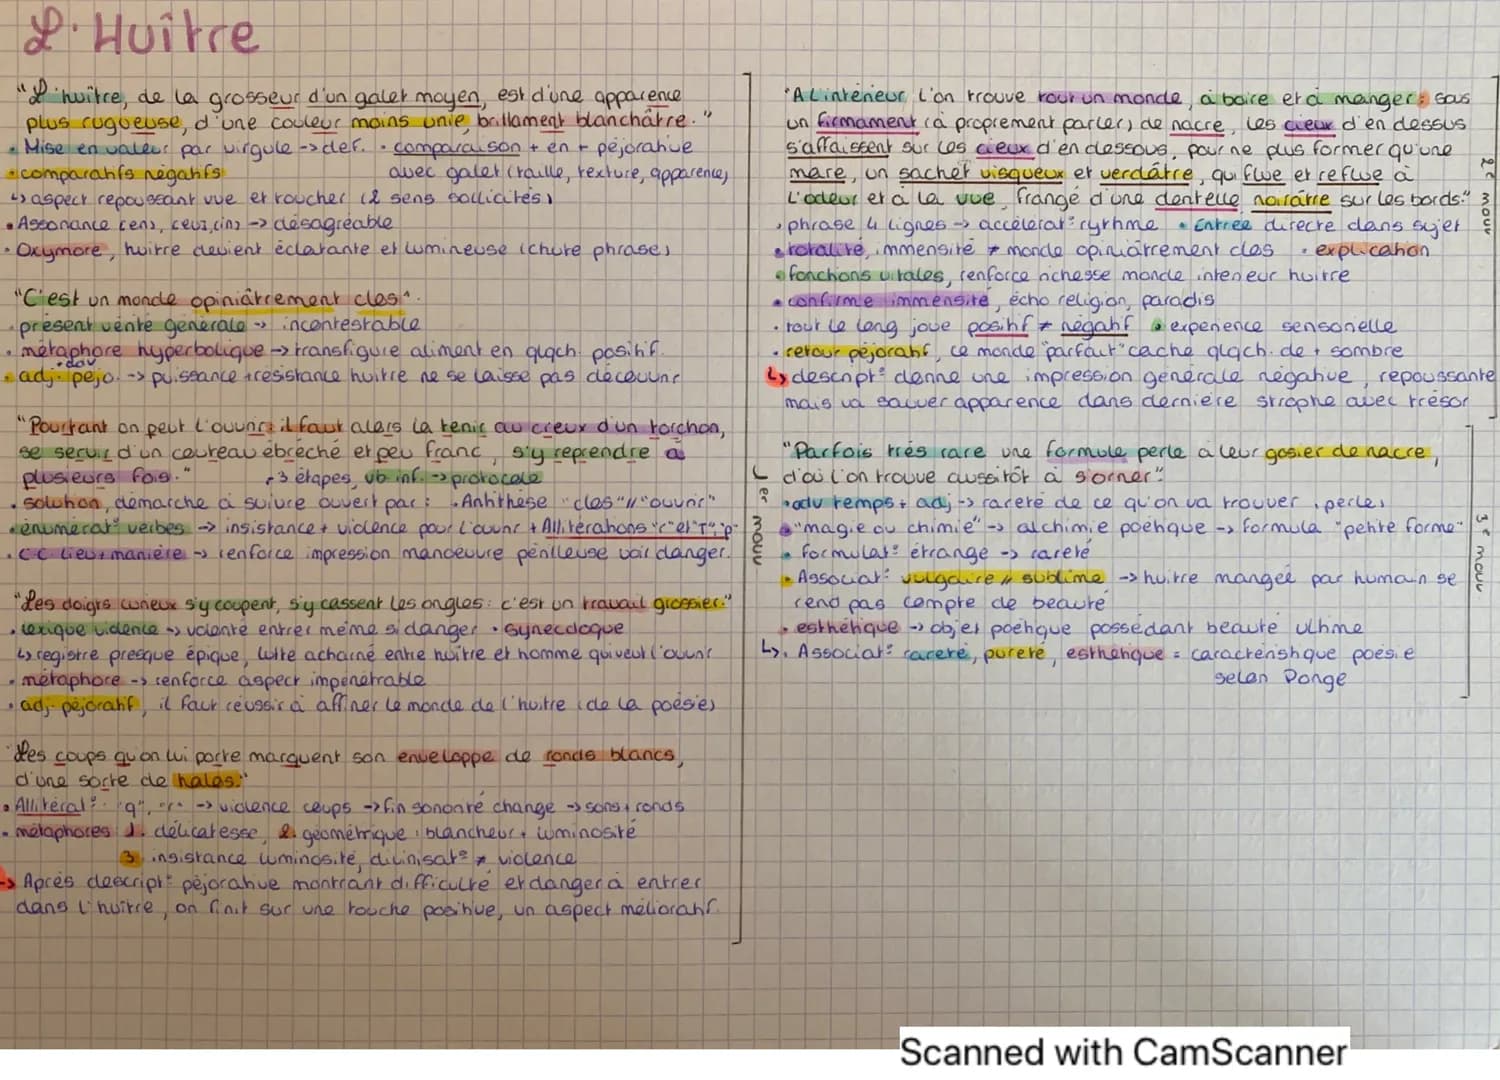 L'Huître
"L'huître, de la grosseur d'un galet moyen, est d'une apparence
plus rugueuse, d'une couleur moins unie, brillament blanchâtre."
• Mise en valeur par virgule -> def. • comparaison + en + péjorative
• comparatifs négatifs avec galet (taille, texture, apparence)
↳ aspect repoussant vue et toucher (2 sens sollicités)
• Assonance (ens, ceux, cin) -> désagréable
• Oxymore, huitre devient éclatante et lumineuse (chute phrase)
"C'est un monde opiniâtrement clos".
• présent vérité générale -> incontestable
• métaphore hyperbolique -> transfigure aliment en qlqch. positif.
+ adv
• adj. péjo. -> puissance + résistance huitre ne se laisse pas découvrir
"Pourtant on peut l'ouvrir: il faut alors la tenir au creux d'un torchon,
se servir d'un couteau ébréché et peu franc, s'y reprendre à
plusieurs fois." 3 étapes, vb inf. -> protocole
• solution, démarche à suivre ouvert par : • Antithèse "clos" // "ouvrir"
• énumérat° verbes -> insistance + violence pour l'ouvrir + Allitérations "r" et "T", "p"
• CC lieu + manière -> renforce impression manoeuvre périlleuse voir danger.
"Les doigts curieux s'y coupent, s'y cassent les ongles: c'est un travail grossier."
• lexique violence -> volonté entrer même si danger • synecdoque
↳ registre presque épique, lutte acharné entre huître et homme qui veut l'ouvrir
• métaphore -> renforce aspect impénétrable
• adj. péjoratif, il faut réussir à affiner le monde de l'huitre (de la poésie)
"Les coups qu'on lui porte marquent son enveloppe de ronds blancs,
d'une sorte de halos."
• Allitérat° "q", "r" -> violence coups -> fin sonorité change -> sons + ronds
• métaphores 1. délicatesse, 2. géométrique : blancheur + luminosité
3. insistance luminosité, divinisat° ≠ violence
-> Après descript° péjorative montrant difficulté et danger à entrer
dans l'huitre, on finit sur une touche positive, un aspect mélioratif.
1er mouv
"A l'intérieur, l'on trouve tout un monde, à boire et à manger : sous
un firmament (à proprement parler) de nacre, les cieux d'en dessus
s'affaissent sur les cieux d'en dessous, pour ne plus former qu'une
mare, un sachet visqueux et verdâtre, qui flue et reflue à
l'odeur et à la vue, frangé d'une dentelle noirâtre sur les bords."
• phrase 4 lignes -> accélérat° rythme • Entrée directe dans sujet
• totalité, immensité ≠ monde opiniâtrement clos • explication
• fonctions vitales, renforce richesse monde interieur huitre
• confirme immensité, écho religion, paradis
• tout le long joue positif ≠ négatif • experience sensorielle
• retour péjoratif, ce monde "parfait" cache qlqch. de + sombre
↳ descript° donne une impression générale négative, repoussante
mais va sauver apparence dans dernière strophe avec trésor
2e mouv
"Parfois très rare une formule perle à leur gosier de nacre,
d'où l'on trouve aussitôt à s'orner".
• adv temps + adj -> rareté de ce qu'on va trouver, perles
• "magie ou chimie" -> alchimie poétique -> formula "petite forme"
• formulat° étrange -> rareté
• Associat° vulgaire // sublime -> huitre mangée par humain se
rend pas compte de beauté
• esthétique -> objet poétique possédant beauté ultime
↳ Associat° rareté, pureté, esthétique = caractéristique poésie
selon Ponge
3e mouv
Scanned with CamScanner